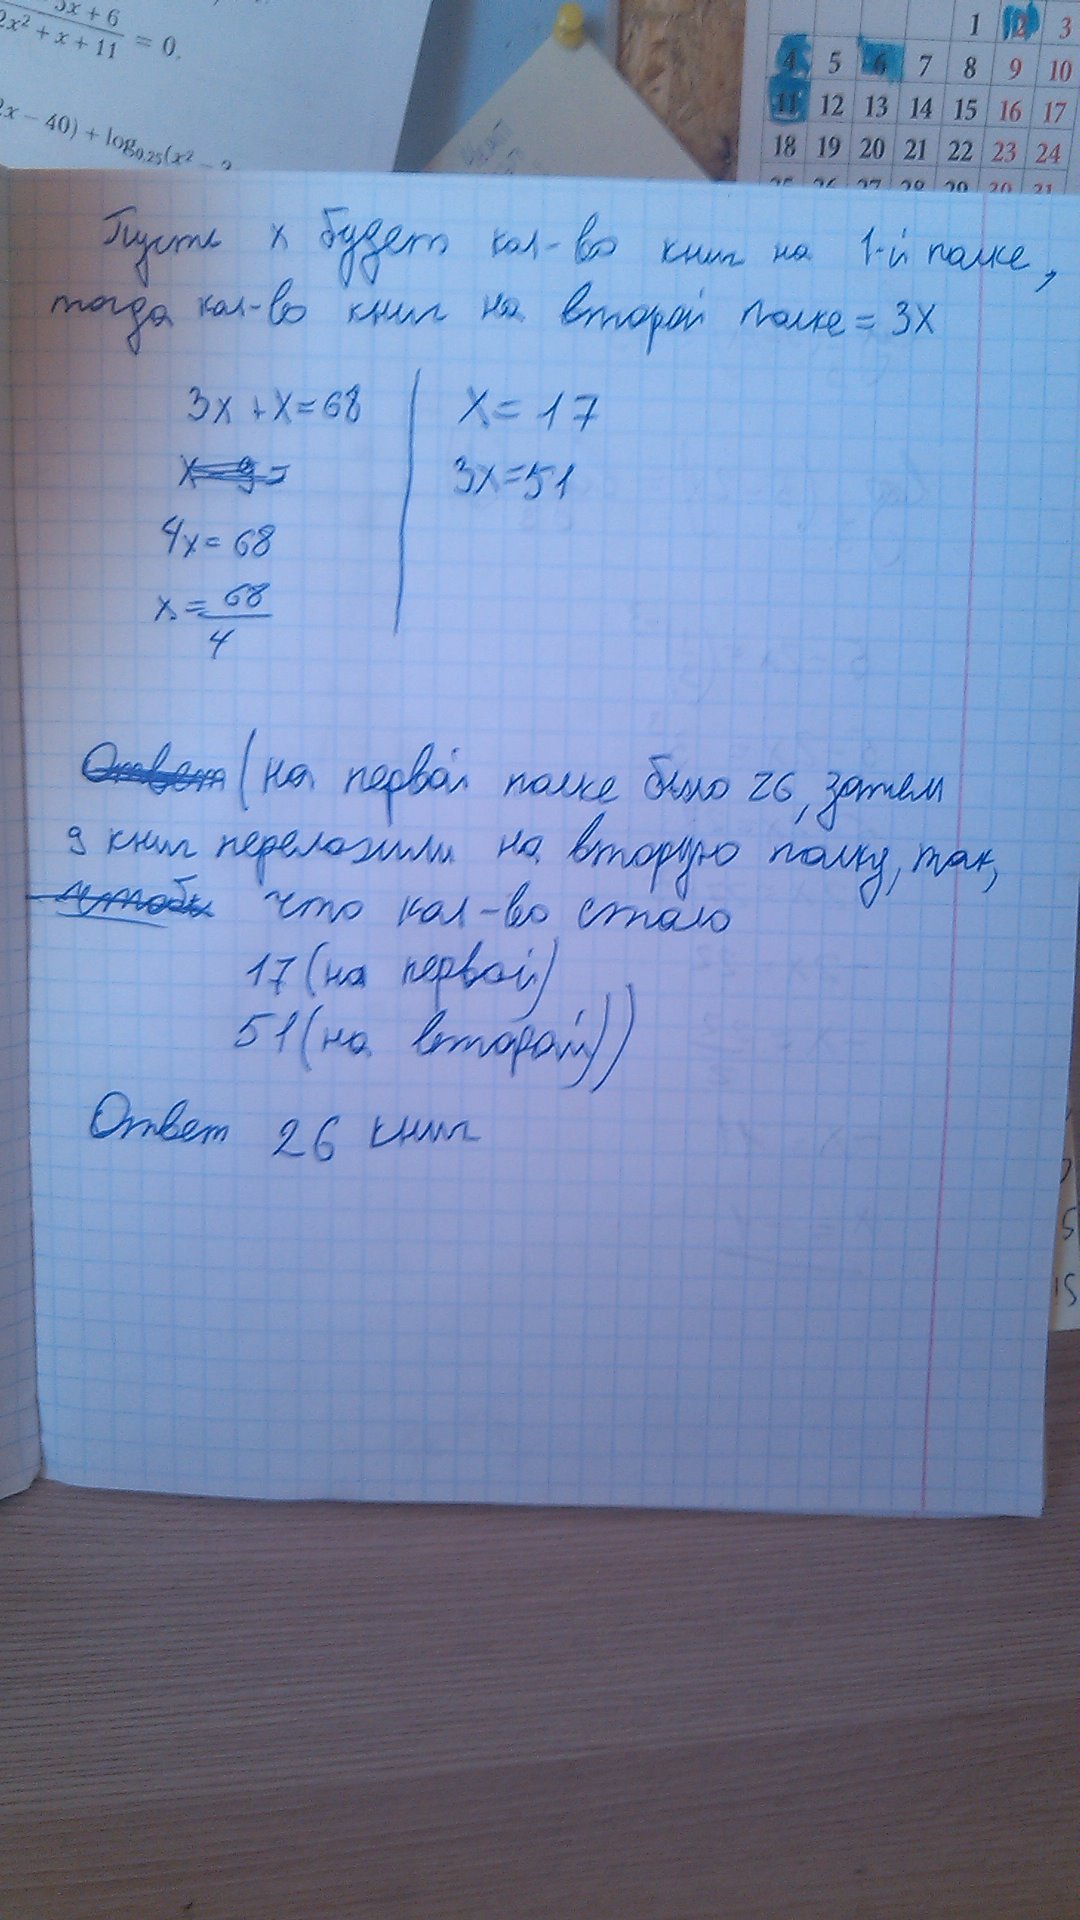 5x + 6
2x² + x + 11 = 0.
2x − 40) + log₀,₂₅(x² −
1 2 3
4 5 6 7 8 9 10
11 12 13 14 15 16 17
18 19 20 21 22 23 24
25 26 27 28 29 30 31
Пусть x будет кол-во книг на 1-й полке,
тогда кол-во книг на второй полке = 3x
3x + x = 68
4x = 68
x = 68/4
x = 17
3x = 51
Ответ (на первой полке было 26, затем
9 книг переложили на вторую полку, так,
чтобы что кол-во стало
17 (на первой)
51 (на второй))
Ответ 26 книг